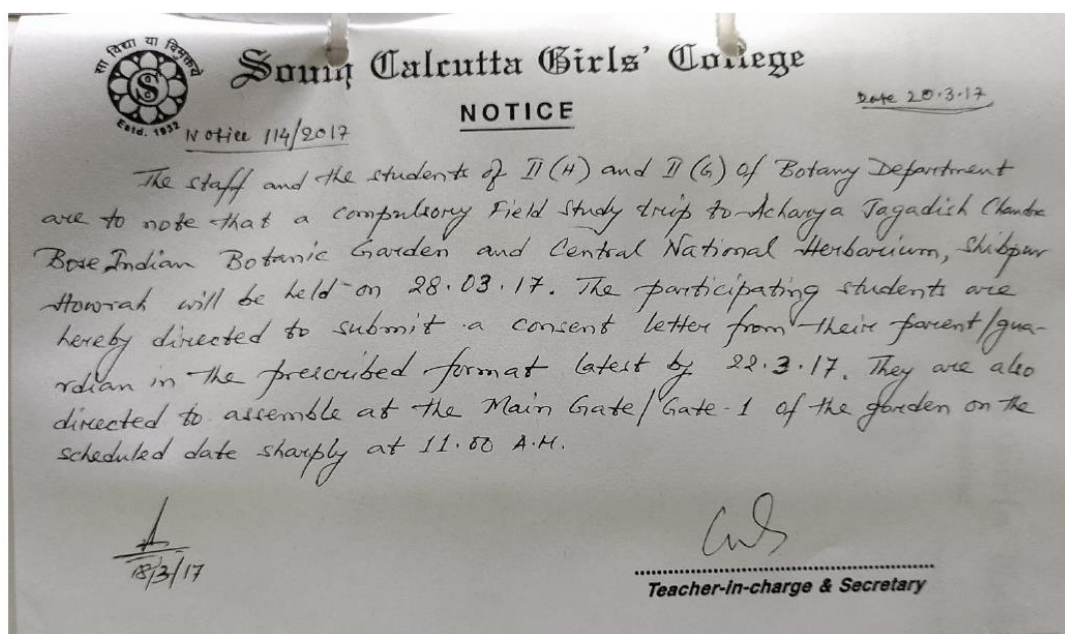 सा विद्या या विमुक्तये
S
Estd. 1932
South Calcutta Girls' College
NOTICE
Date 20.3.17
Notice 114/2017
The staff and the students of II (H) and II (G) of Botany Department
are to note that a compulsory Field Study trip to Acharya Jagadish Chandra
Bose Indian Botanic Garden and Central National Herbarium, Shibpur
Howrah will be held on 28.03.17. The participating students are
hereby directed to submit a consent letter from their parent/gua-
rdian in the prescribed format latest by 22.3.17. They are also
directed to assemble at the Main Gate/Gate-1 of the garden on the
scheduled date sharply at 11.00 A.M.
18/3/17
Teacher-in-charge & Secretary